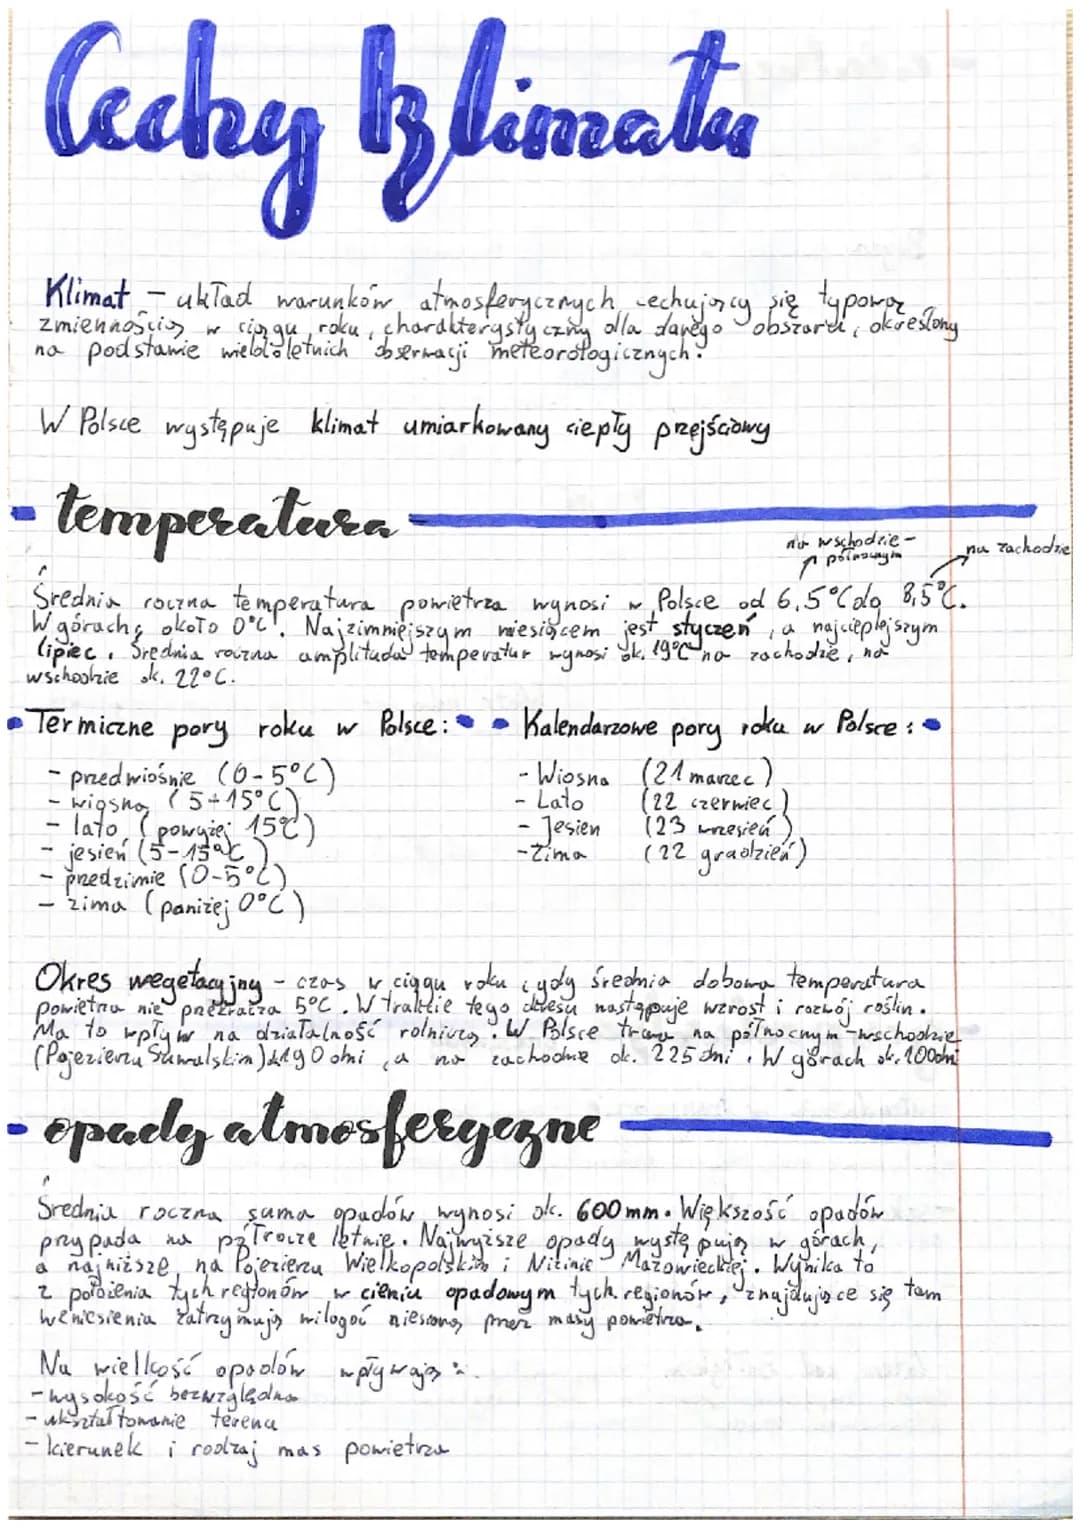 Cechy klimatu
Klimat - układ warunków atmosferycznych cechujący się typową
zmiennością w ciągu roku, charakterystyczny dla danego obszaru, określony
na podstawie wieloletnich obserwacji meteorologicznych.
W Polsce występuje klimat umiarkowany ciepły przejściowy
- temperatura
na wschodzie -
północnym
na zachodzie
Średnia roczna temperatura powietrza wynosi w Polsce od 6,5°C do 8,5°C.
W górach, około 0°C. Najzimniejszym miesiącem jest styczeń, a najcieplejszym
lipiec. Średnia roczna amplituda temperatur wynosi ok. 19°C na zachodzie, na
wschodzie ok. 22°C.
• Termiczne pory roku w Polsce: •
- przedwiośnie (0-5°C)
- wiosna (5÷15°C)
- lato (powyżej 15°C)
- jesień (5-15°C)
- przedzimie (0-5°C)
- zima (poniżej 0°C)
• Kalendarzowe pory roku w Polsce: •
- Wiosna (21 marzec)
- Lato (22 czerwiec)
- Jesien (23 wrzesień)
- Zima (22 grudzień)
Okres wegetacyjny - czas w ciągu roku, gdy średnia dobowa temperatura
powietrza nie przekracza 5°C. W trakcie tego okresu następuje wzrost i rozwój roślin.
Ma to wpływ na działalność rolniczą. W Polsce trwa na północnym-wschodzie
(Pojezierzu Suwalskim) 190 dni, a na zachodzie ok. 225 dni. W górach ok. 100dni
- opady atmosferyczne
Średnia roczna suma opadów wynosi ok. 600mm. Większość opadów
przypada na półrocze letnie. Najwyższe opady występują w górach,
a najniższe na Pojezierzu Wielkopolskim i Nizinie Mazowieckiej. Wynika to
z położenia tych regionów w cieniu opadowym tych regionów, znajdujące się tam
wzniesienia zatrzymują wilgoć niesioną przez masy powietrza.
Na wielkość opadów wpływają:
- wysokość bezwzględna
- ukształtowanie terenu
- kierunek i rodzaj mas powietrza